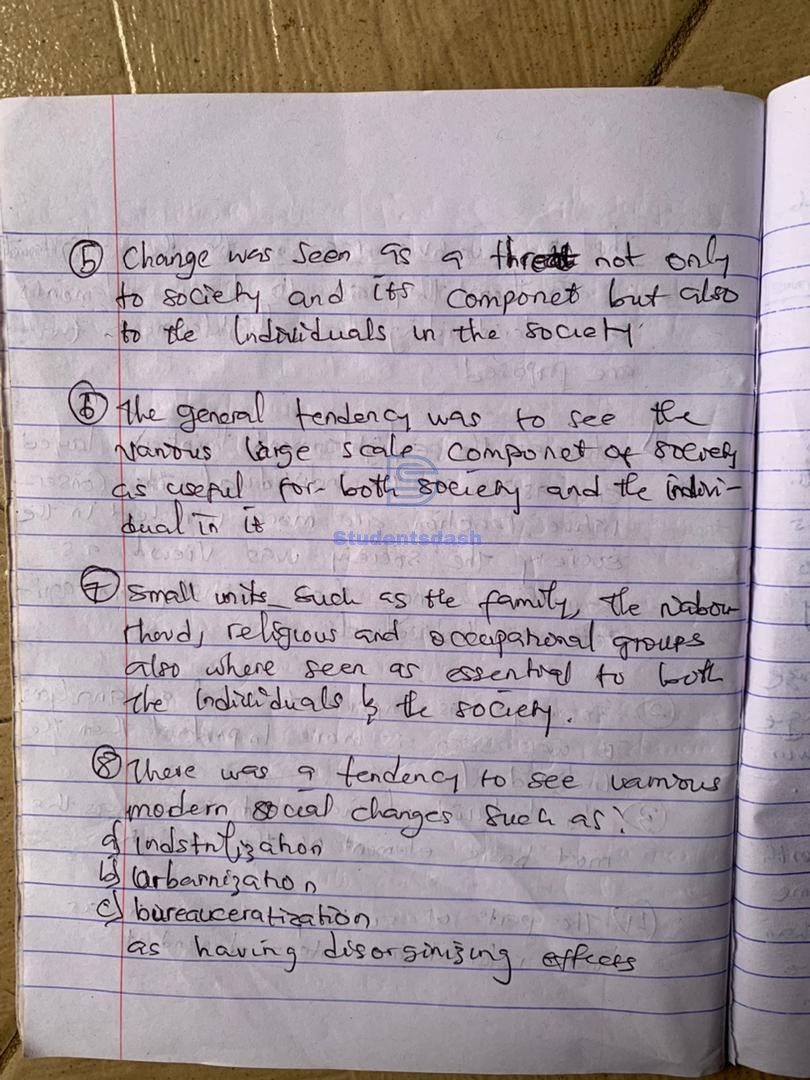 ⑤ Change was seen as a threat not only
to society and its componet but also
to the Individuals in the society
⑥ The general tendency was to see the
Various large scale componet of society
as useful for both society and the indivi-
dual in it
Studentsdash
⑦ Small units such as the family, the Nabou
rhood, religious and occupational groups
also where seen as essential to both
the Individuals & the society.
⑧ There was a tendency to see various
modern social changes such as:
a) Indstrilization
b) Urbarnization
c) bureauceratization
as having disorginizing effects